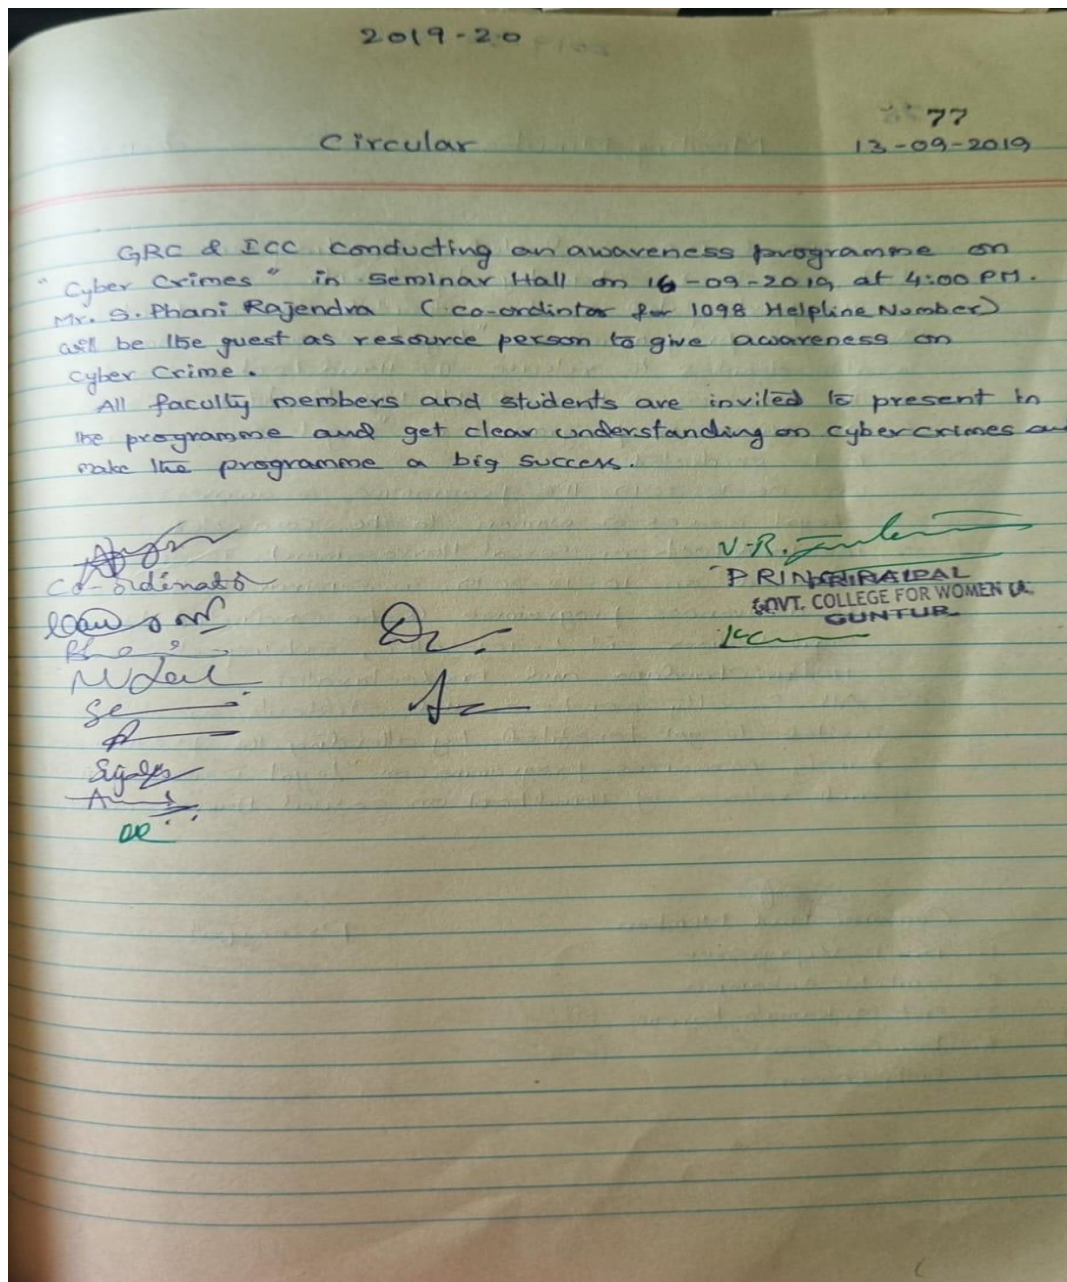 2019-20
77
Circular 13-09-2019
GRC & ICC conducting an awareness programme on
"Cyber Crimes" in Seminar Hall on 16-09-2019 at 4:00 PM.
Mr. S. Phani Rajendra (co-ordintor for 1098 Helpline Number)
will be the guest as resource person to give awareness on
Cyber Crime.
All faculty members and students are invited to present in
the programme and get clear understanding on cyber crimes
make the programme a big success.
Co-ordinator
V.R.
PRINCIPAL
GOVT. COLLEGE FOR WOMEN (A)
GUNTUR